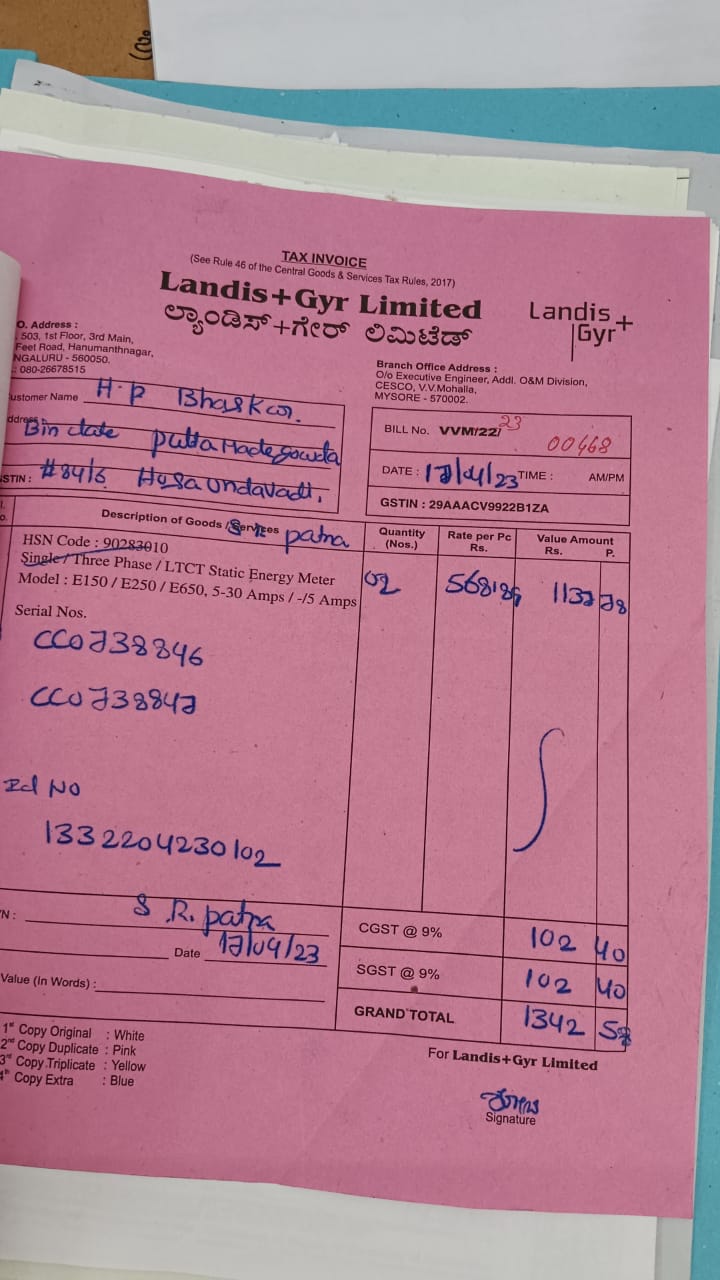 TAX INVOICE
(See Rule 46 of the Central Goods & Services Tax Rules, 2017)
Landis+Gyr Limited
ಲ್ಯಾಂಡಿಸ್+ಗೇರ್ ಲಿಮಿಟೆಡ್
Landis+
Gyr
O. Address :
503, 1st Floor, 3rd Main,
Feet Road, Hanumanthnagar,
NGALURU - 560050.
: 080-26678515
Branch Office Address :
O/o Executive Engineer, Addl. O&M Division,
CESCO, V.V.Mohalla,
MYSORE - 570002.
ustomer Name H.P Bhaskar.
ddress Bin late Putta Madegowda
STIN : #84/6 Hosaundavadi.
BILL No. VVM/22/ 23 00468
DATE : 17/04/23 TIME : AM/PM
GSTIN : 29AAACV9922B1ZA
Description of Goods / Services patna
Quantity (Nos.)
Rate per Pc Rs.
Value Amount Rs. P.
HSN Code : 90283010
Single / Three Phase / LTCT Static Energy Meter
Model : E150 / E250 / E650, 5-30 Amps / -/5 Amps
02 568 89 1137 78
Serial Nos.
CC0738846
CC0738847
Id No
1332204230102
N : S R. patna
Date 17/04/23
Value (In Words) :
CGST @ 9% 102 40
SGST @ 9% 102 40
GRAND TOTAL 1342 58
1st Copy Original : White
2nd Copy Duplicate : Pink
3rd Copy Triplicate : Yellow
4th Copy Extra : Blue
For Landis+Gyr Limited
Signature